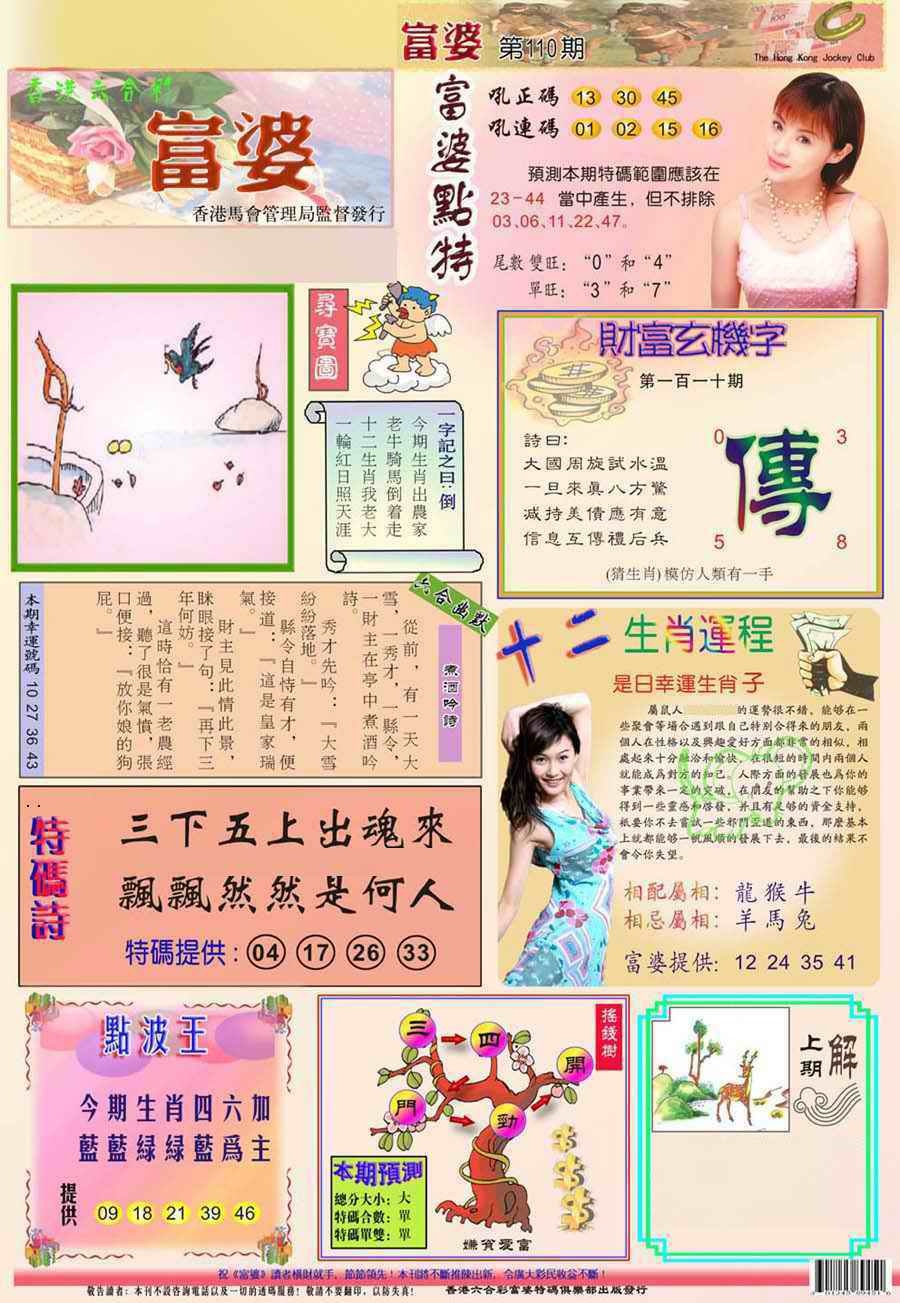 富婆 第110期
The Hong Kong Jockey Club
香港六合彩
富婆
香港馬會管理局監督發行
富婆點特
吼正碼 13 30 45
吼連碼 01 02 15 16
預測本期特碼範圍應該在
23-44 當中產生,但不排除
03、06、11、22、47。
尾數雙旺:“0”和“4”
單旺:“3”和“7”
尋寶圖
一字記之曰:倒
今期生肖出農家
老牛騎馬倒着走
十二生肖我老大
一輪紅日照天涯
財富玄機字
第一百一十期
詩曰:
大國周旋試水溫
一旦來眞八方驚
减持美債應有意
信息互傳禮后兵
0 3
傳
5 8
(猜生肖)模仿人類有一手
六合幽默
煮酒吟詩
從前,有一天大
雪,一秀才,一縣令,
一財主在亭中煮酒吟
詩。
秀才先吟:『大雪
紛紛落地。』
縣令自恃有才,便
接道:『這是皇家瑞
氣。』
財主見此情此景,
眯眼接了句:『再下三
年何妨。』
這時恰有一老農經
過,聽了很是氣憤,張
口便接:『放你娘的狗
屁。』
本期幸運號碼 10 27 36 43
十二生肖運程
是日幸運生肖子
屬鼠人的運勢很不錯,能够在一
些聚會等場合遇到跟自己特别合得來的朋友,兩
個人在性格以及興趣愛好方面都非常的相似,相
處起來十分融洽和愉快,在很短的時間内兩個人
就能成爲對方的知己。人際方面的發展也爲你的
事業帶來一定的突破,在朋友的幫助之下你能够
得到一些靈感和啓發,并且有足够的資金支持,
衹要你不去嘗試一些邪門歪道的東西,那麽基本
上就都能够一帆風順的發展下去,最後的結果不
會令你失望。
相配屬相:龍猴牛
相忌屬相:羊馬兔
富婆提供:12 24 35 41
特碼詩
三下五上出魂來
飄飄然然是何人
特碼提供:04 17 26 33
點波王
今期生肖四六加
藍藍緑緑藍爲主
提供 09 18 21 39 46
搖錢樹
三 四 開
門 勁
本期預測
總分大小:大
特碼合數:單
特碼單雙:單
嫌貧愛富
上期解
祝《富婆》讀者横財就手,節節領先!本刊將不斷推陳出新,令廣大彩民收益不斷!
敬告讀者:本刊不設咨詢電話以及一切的透碼服務!敬請不要翻印,以防失真! 香港六合彩富婆特碼俱樂部出版發行